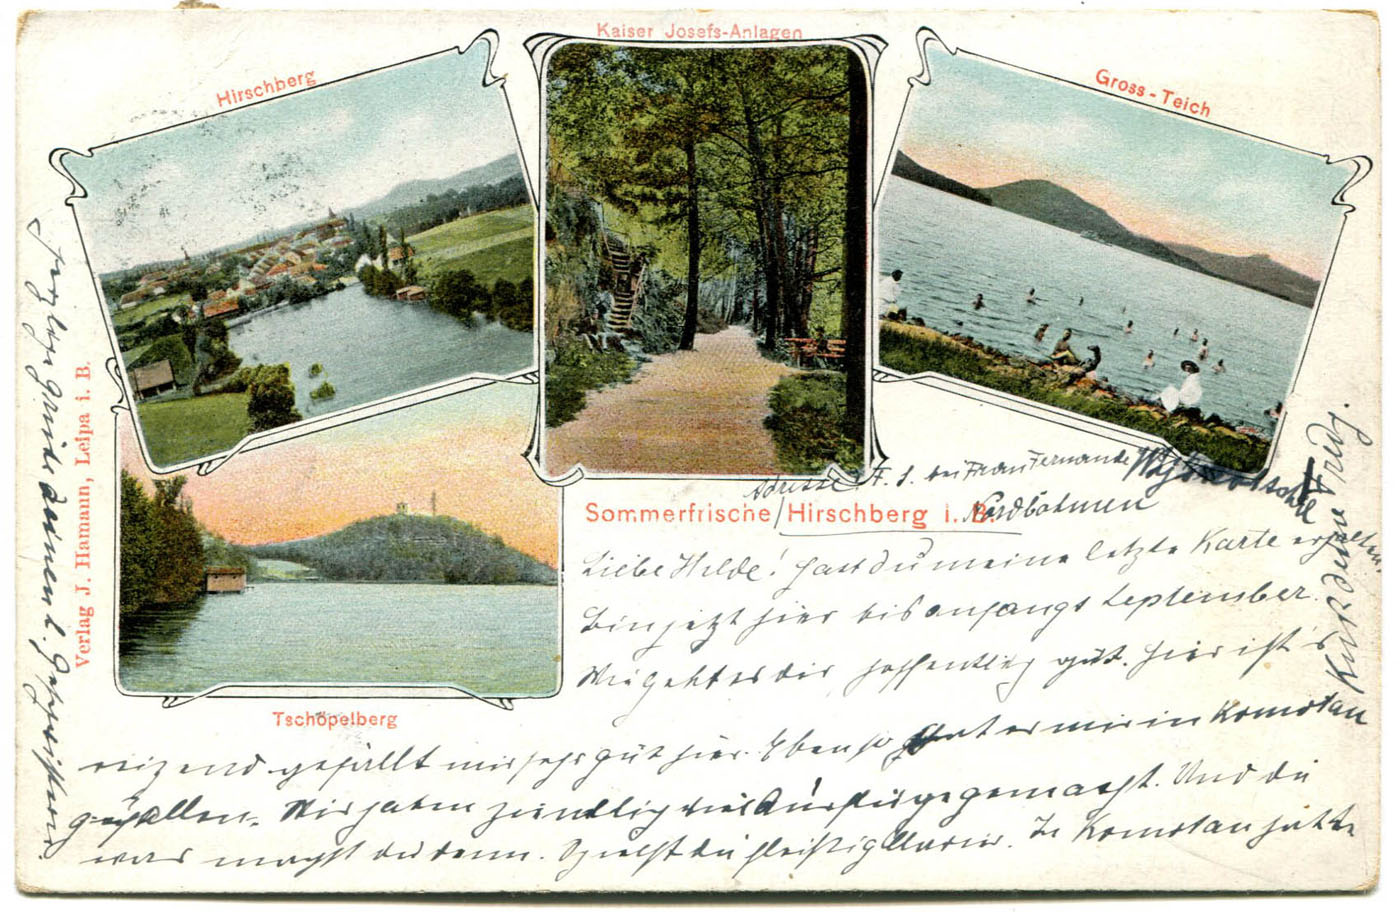 Kaiser Josefs-Anlagen
Hirschberg
Gross-Teich
Verlag J. Hamann, Leipa i. B.
Tschöpelberg
Sommerfrische Hirschberg i. B.
Adresse: F. S. bei Frau Fernande
Nordböhmen
Liebe Hilde! Hast du meine letzte Karte erhalten.
Bin jetzt hier bis anfangs September.
Wie geht es dir hoffentlich gut. Hier ist's
reizend gefällt mir sehr gut hier. Ebenso hat es mir in Komotau
gefallen. Wir haben ziemlich viel Ausflüge gemacht. Und du
was machst du denn. Spielst du fleißig Klavier. In Komotau hatte
Herzlichen Grüße deinen l. Geschwistern.
Kuss deine Friedl.